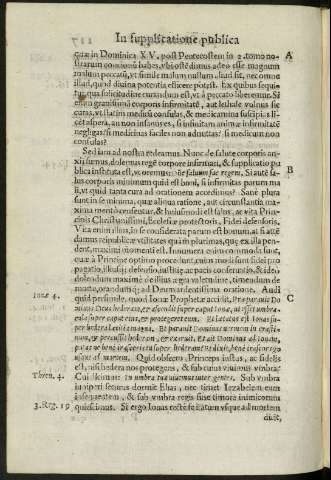 In supplicatione publica
quæ in Dominica XV. post Pentecostem in 2. tomo no-
A
strarum concionũ habes, vbi ostẽdimus adeo esse magnum
malum peccatũ, vt simile malum nullum aliud sit, nec omne
illud, quod diuina potentia efficere potest. Ex quibus sequi-
tur, qua solicitudine curandum est, vt à peccato liberemur. Si
enim grauissima corporis infirmitate, aut lethale vulnus sic
catas, vt statim medicũ consulas, & medicamina suscipias li-
cet aspera, an non insanires, si infinitam animæ infirmitatẽ
negligas? si medicinas faciles non admittas? si medicum non
consulas?
Sed iam ad nostra redeamus. Nunc de salute corporis an-
xii sumus, dolemus regẽ corpore infirmari, & supplicatio pu
B
blica instituta est, vt oremus: Domine saluum fac regem. Si autẽ sa-
lus corporis minimum quid est boni, si infirmitas parum ma
li, vt quid tanta cura ad orationem accedimus? Sanè plura
sunt in se minima, quæ aliqua ratione, aut circumstantia ma-
xima mentò censentur, & huiusmodi est salus, ac vita Prin-
cipis Christianissimi, Ecclesiæ protectoris, Fidei defensoris,
Vita enim illius, in se considerata parum est bonum, at si attẽ
damus reipublicæ vtilitates quàm plurimas, quæ ex illa pen-
dent, maximi momenti est. Innumera enim commoda sunt,
quæ à Principe optimo procedunt, cuius modi sunt fidei pro
pagatio, illiusq; defensio, iustitiæ ac pacis conseruatio, & ideo
dolendum maximè de illius ægra valetudine, timendum de
morte, orandũq; ad Deum ardentissima oratione. Audi
C
Ionæ 4.
quid persimile, quod Ionæ Prophetæ accidit, Præparauit Do
minus Deus hederam, & ascendit super caput Ionæ, vt esset vmbra
super caput eius, & protegeret eum. Et lætatus est Ionas su-
per hedera lætitia magna. Et parauit Dominus vermem in crasti-
num, & percussit hederam, & exaruit. Et ait Dominus ad Ionam,
putas ne bene irasceris super hederam? et dixit, bene irascor ego
vsque ad mortem. Quid obsecro Princeps iustus, ac fidelis
est, nisi hedera nos protegens, & sub cuius viuimus vmbra?
Thren. 4.
Cui dicimus: In vmbra tua viuemus inter gentes. Sub vmbra
iuniperi securus dormit Elias, nec timet Iezabelem eum
insequentem, & sub vmbra regis sine timore inimicorum
3. Reg. 19
quiescimus. Si ergo Ionas rectè fe latum vsque ad mortem
dicit,